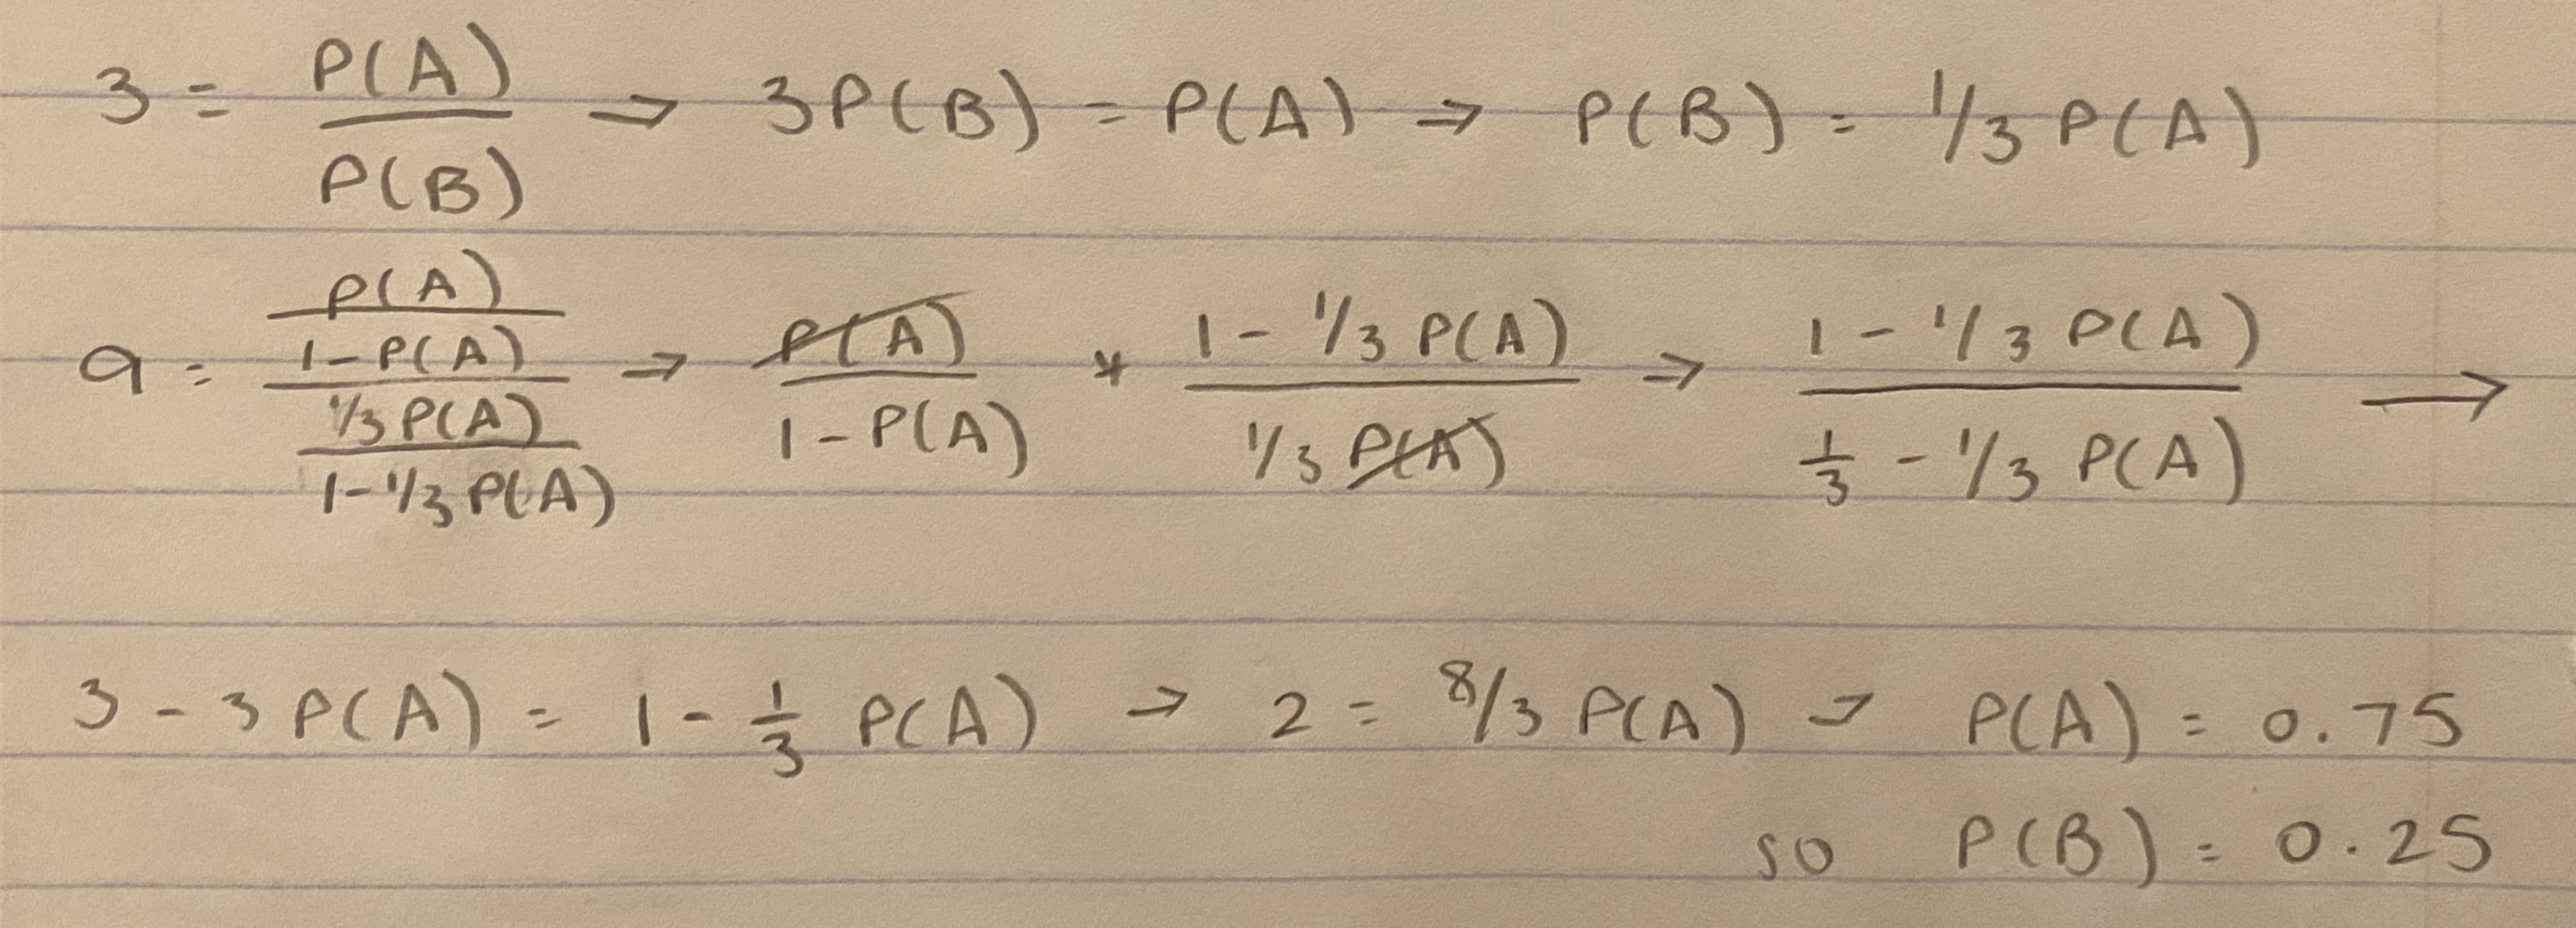 3 = P(A) / P(B) ⇒ 3P(B) = P(A) ⇒ P(B) = 1/3 P(A)
9 = (P(A) / (1-P(A))) / (1/3 P(A) / (1-1/3 P(A))) → P(A) / (1-P(A)) * (1-1/3 P(A)) / (1/3 P(A)) → (1-1/3 P(A)) / (1/3 - 1/3 P(A)) →
3 - 3P(A) = 1 - 1/3 P(A) → 2 = 8/3 P(A) → P(A) = 0.75
so P(B) = 0.25